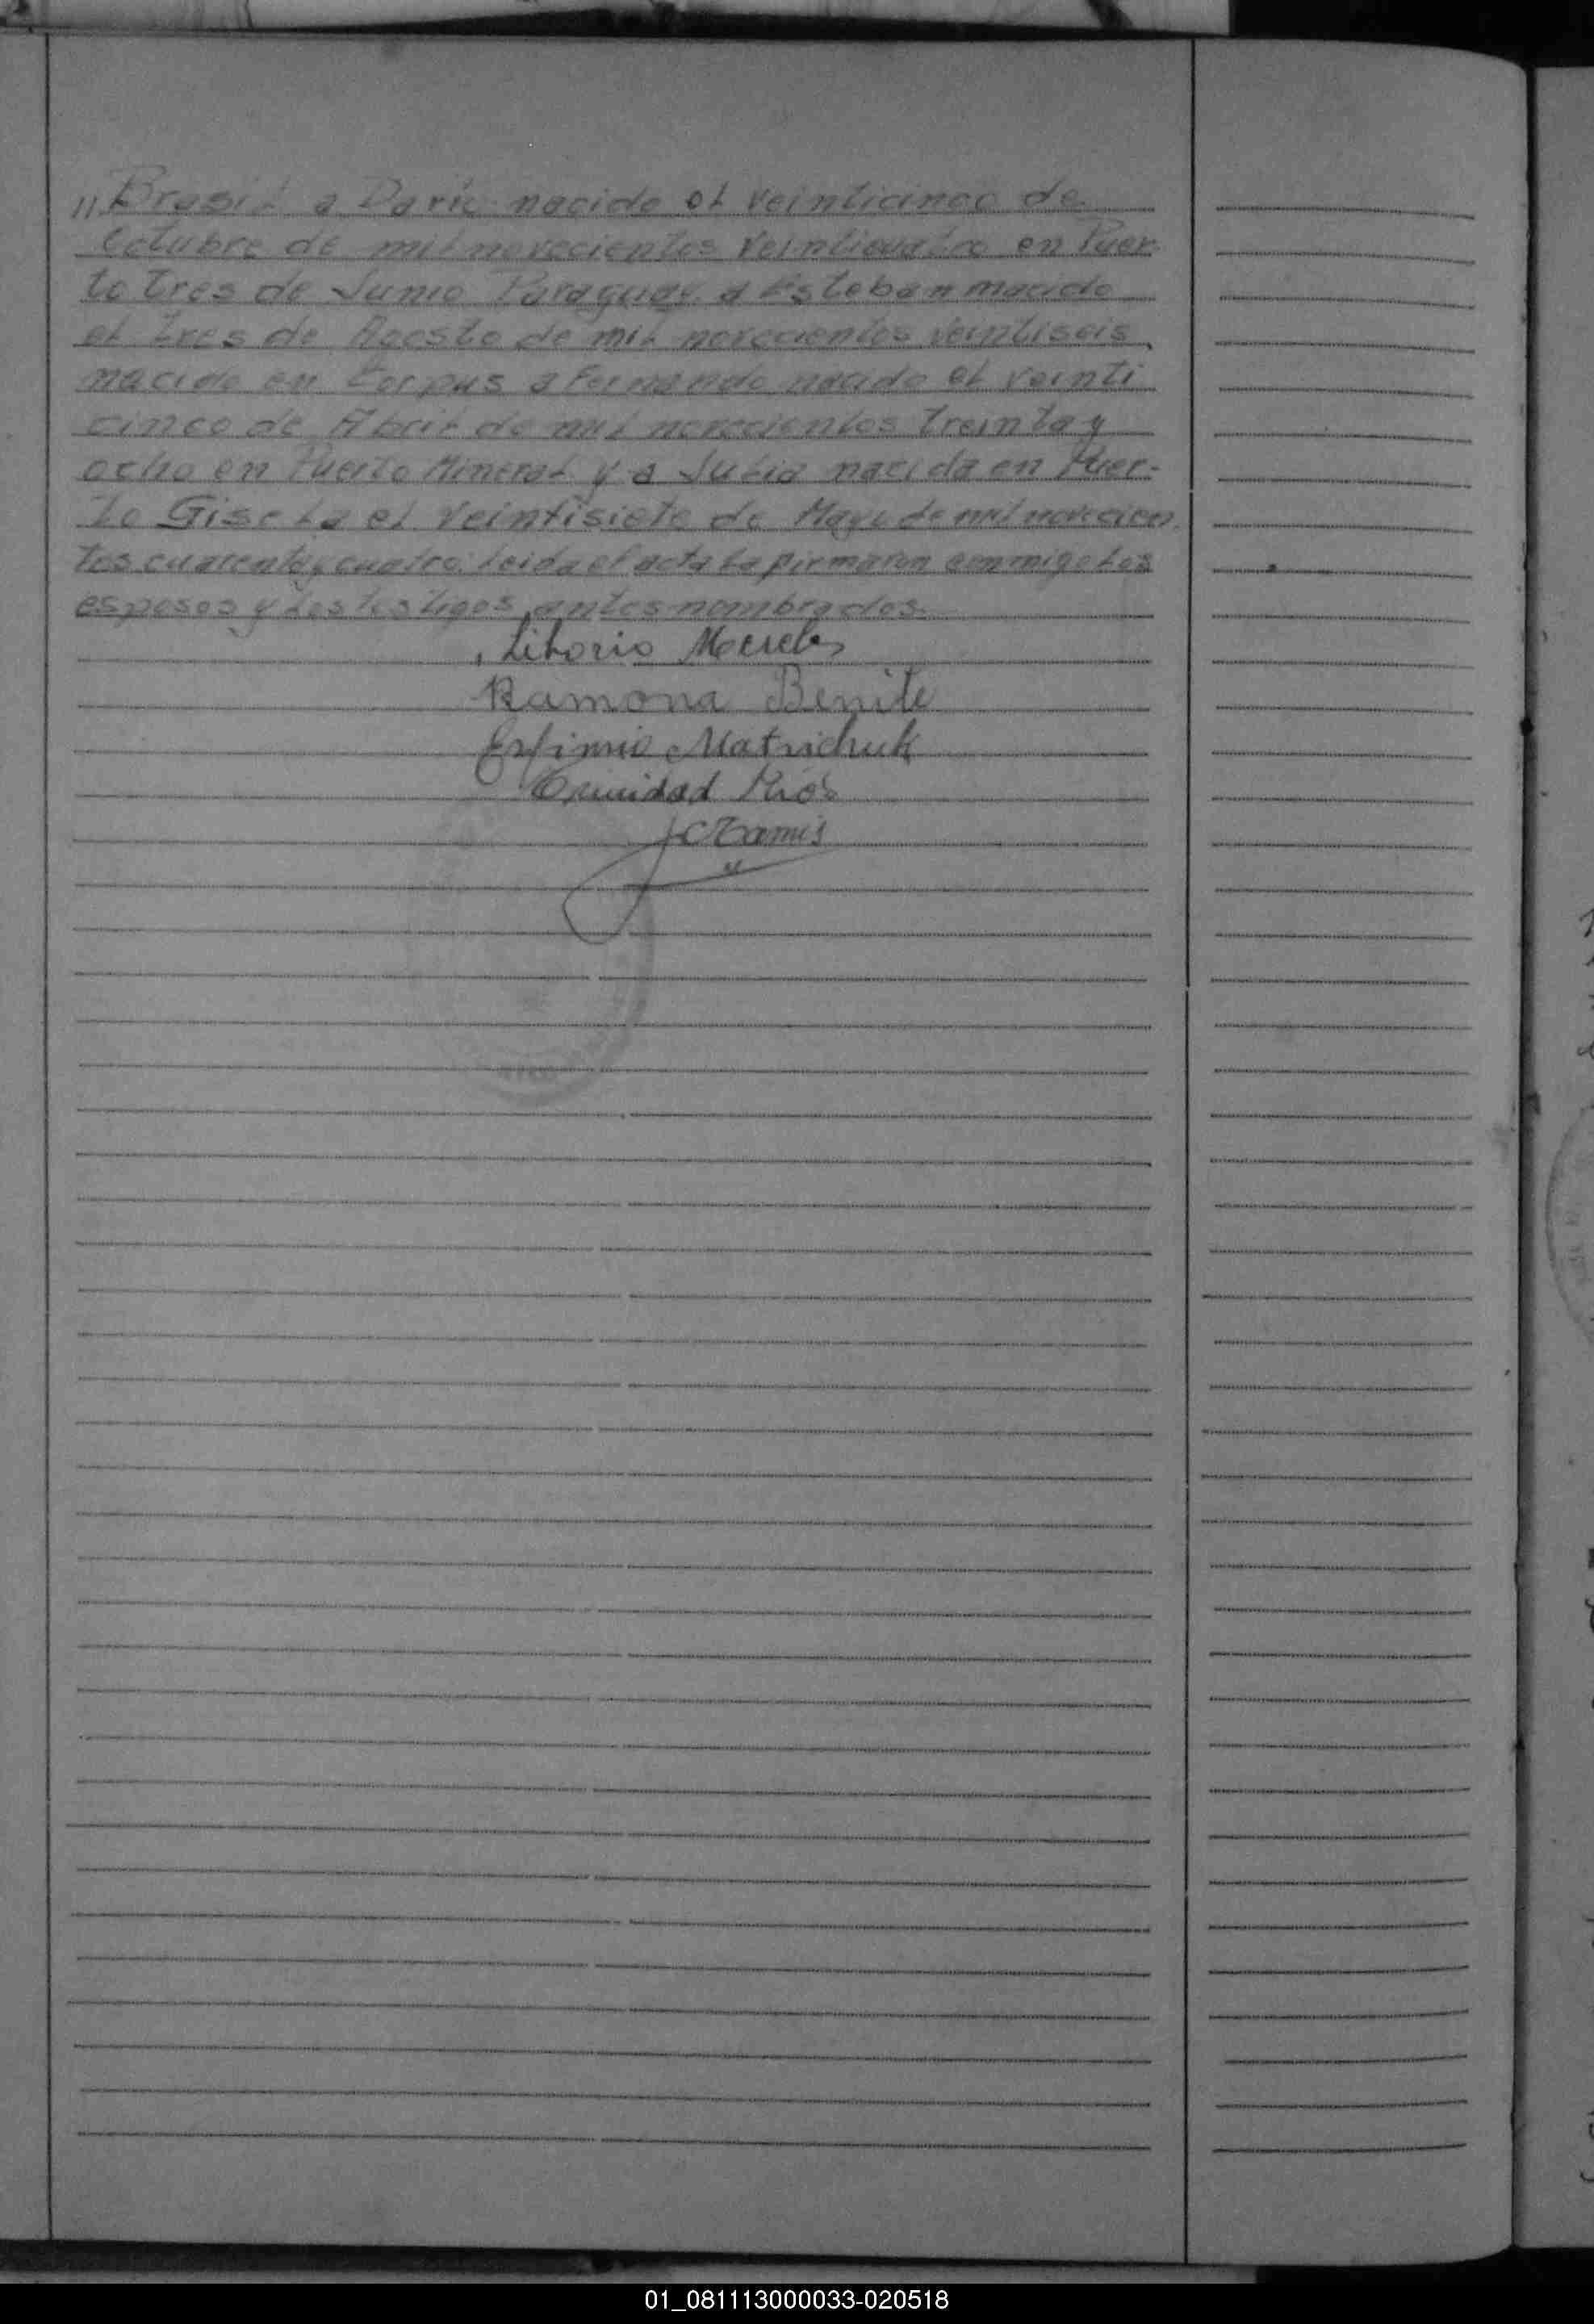 " Brasil a Dario nacido el veinticinco de
octubre de mil novecientos veinticuatro en Puer
to Tres de Junio Paraguay a Esteban nacido
el tres de Agosto de mil novecientos veintiseis,
nacido en Corpus a Fernando nacido el veinti
cinco de Abril de mil novecientos treinta y
ocho en Puerto Mineral y a Julia nacida en Puer-
to Gisela el veintisiete de Mayo de mil novecien
tos cuarenta y cuatro. leida el acta la firmaron conmigo los
esposos y los testigos antes nombrados.
Liborio Meireles
Ramona Benite
Matrichuk
Trinidad Rios
01_081113000033-020518